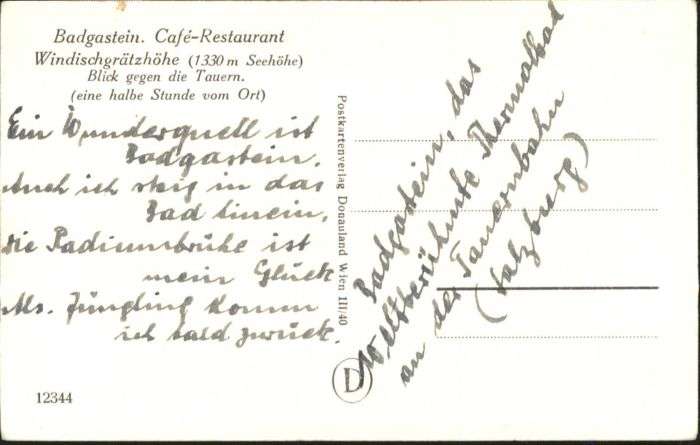 Badgastein. Café-Restaurant
Windischgrätzhöhe (1330 m Seehöhe)
Blick gegen die Tauern.
(eine halbe Stunde vom Ort)
Ein Wunderquell ist
Badgastein.
Auch ich steig in das
Bad hinein,
die Radiumbrühe ist
mein Glück
Als. Jüngling komm
ich bald zurück.
12344
Postkartenverlag Donauland Wien III/40
D
Badgastein, das
weltberühmte Thermalbad
an der Tauernbahn
(Salzburg)